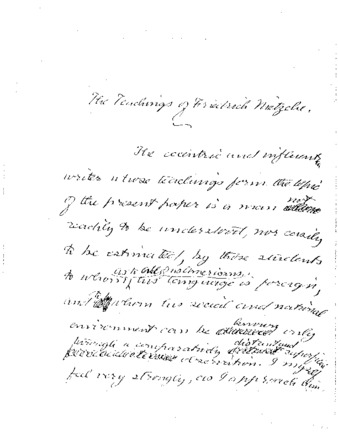 The Teachings of Friedrich Nietzche.
The eccentric and influential
writer whose teachings form the topic
of the present paper is a man not
readily to be understood, nor easily
to be estimated, by those students
to whom, as to all us Americans, his language is foreign,
and to whom his social and national
environment can be known only
through a comparatively distant and superficial
observation. I myself
feel very strongly, as I approach him